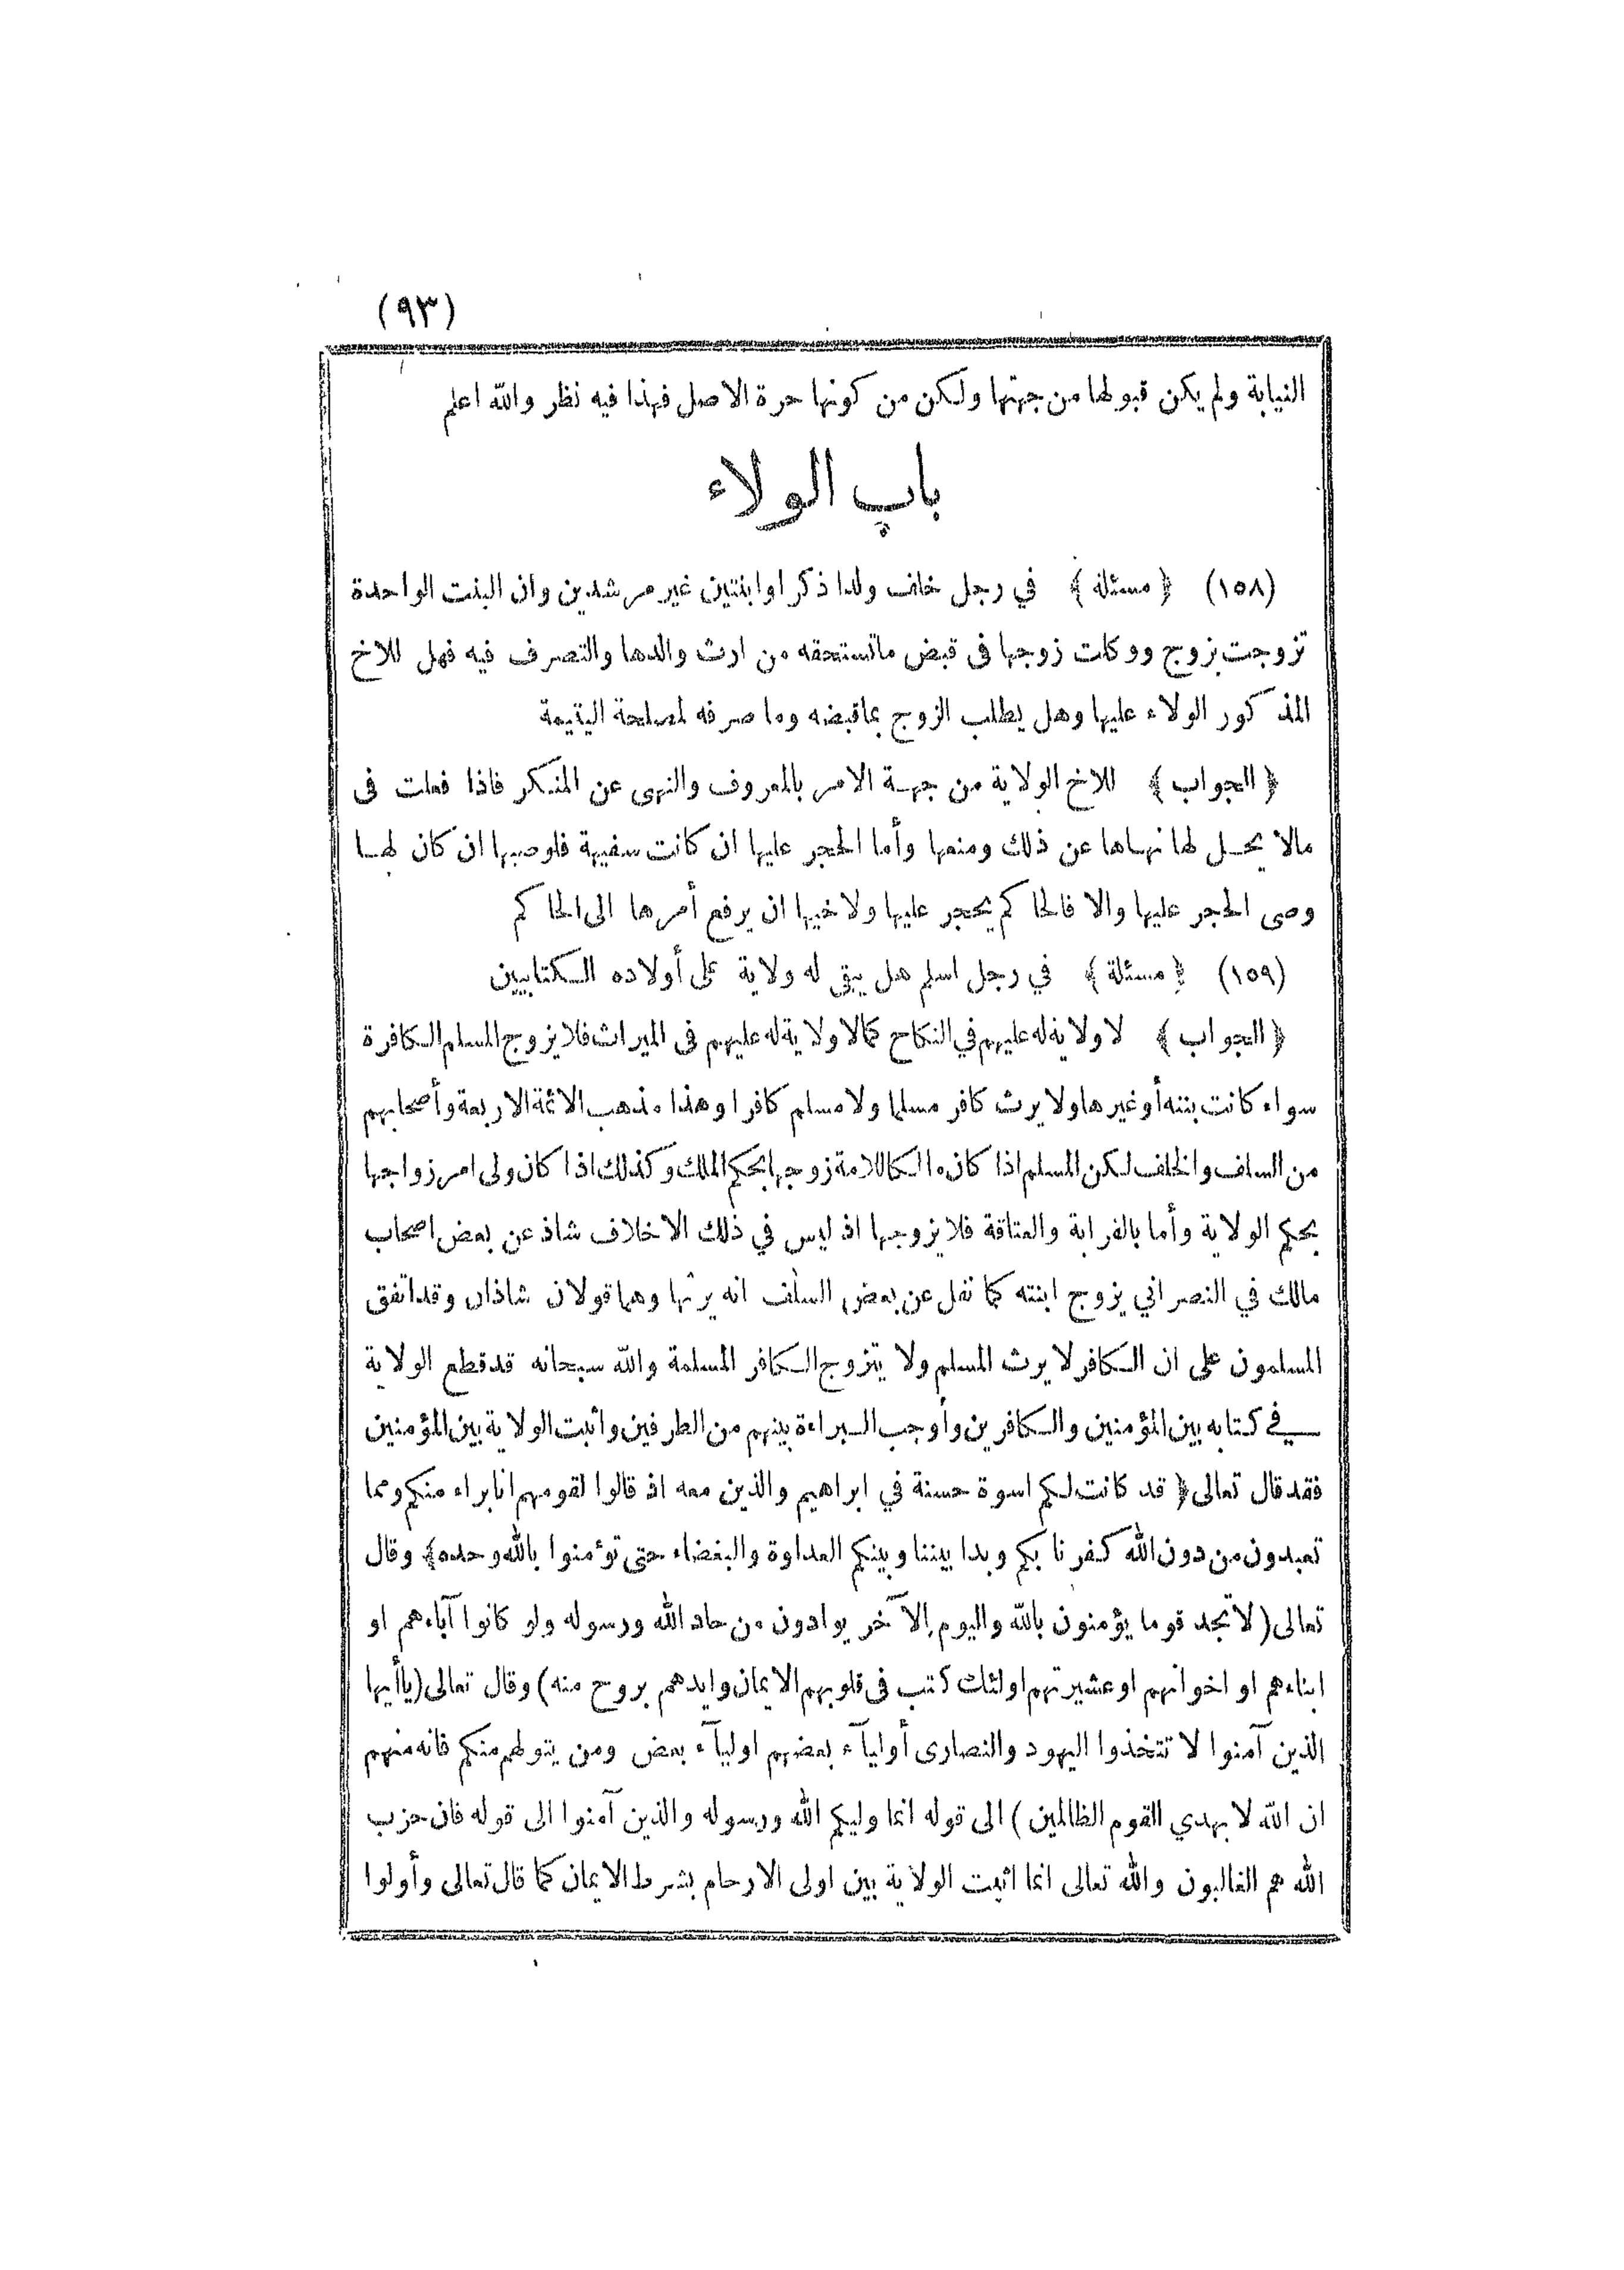 (٩٣)
النيابة ولم يكن قبولها من جهتها ولكن من كونها حرة الاصل فهذا فيه نظر والله اعلم
باب الولاء
(١٥٨) ﴿ مسئلة ﴾ في رجل خلف ولدا ذكرا وابنتين غير مرشدين وان البنت الواحدة
تزوجت بزوج ووكلت زوجها فى قبض ماتستحقه من ارث والدها والتصرف فيه فهل للاخ
المذكور الولاء عليها وهل يطلب الزوج بماقبضه وما صرفه لمصلحة اليتيمة
﴿ الجواب ﴾ للاخ الولاية من جهة الامر بالمعروف والنهى عن المنكر فاذا فعلت فى
مالا يحل لها نهاها عن ذلك ومنعها وأما الحجر عليها ان كانت سفيهة فلوصيها ان كان لها
وصى الحجر عليها والا فالحاكم يحجر عليها ولاخيها ان يرفع أمرها الى الحاكم
(١٥٩) ﴿ مسئلة ﴾ في رجل اسلم هل يبقى له ولاية على أولاده الكتابيين
﴿ الجواب ﴾ لا ولاية له عليهم في النكاح كما لا ولاية له عليهم فى الميراث فلا يزوج المسلم الكافرة
سواء كانت بنته أو غيرها ولا يرث كافر مسلما ولا مسلم كافرا وهذا مذهب الائمة الاربعة وأصحابهم
من السلف والخلف لكن المسلم اذا كان مالكا للامة زوجها بحكم الملك وكذلك اذا كان ولى امر زواجها
بحكم الولاية وأما بالقرابة والعتاقة فلا يزوجها اذ ليس في ذلك الا خلاف شاذ عن بعض اصحاب
مالك في النصراني يزوج ابنته كما نقل عن بعض السلف انه يرثها وهما قولان شاذان وقد اتفق
المسلمون على ان الكافر لا يرث المسلم ولا يتزوج الكافر المسلمة والله سبحانه قد قطع الولاية
في كتابه بين المؤمنين والكافرين وأوجب البراءة بينهم من الطرفين واثبت الولاية بين المؤمنين
فقد قال تعالى ﴿ قد كانت لكم اسوة حسنة في ابراهيم والذين معه اذ قالوا لقومهم انا براء منكم ومما
تعبدون من دون الله كفرنا بكم وبدا بيننا وبينكم العداوة والبغضاء حتى تؤمنوا بالله وحده ﴾ وقال
تعالى ( لا تجد قوما يؤمنون بالله واليوم الآخر يوادون من حاد الله ورسوله ولو كانوا آباءهم او
ابناءهم او اخوانهم او عشيرتهم اولئك كتب فى قلوبهم الايمان وايدهم بروح منه ) وقال تعالى ( ياأيها
الذين آمنوا لا تتخذوا اليهود والنصارى أوليآء بعضهم اوليآء بعض ومن يتولهم منكم فانه منهم
ان الله لا يهدي القوم الظالمين ) الى قوله انما وليكم الله ورسوله والذين آمنوا الى قوله فان حزب
الله هم الغالبون والله تعالى انما اثبت الولاية بين اولى الارحام بشرط الايمان كما قال تعالى وأولوا